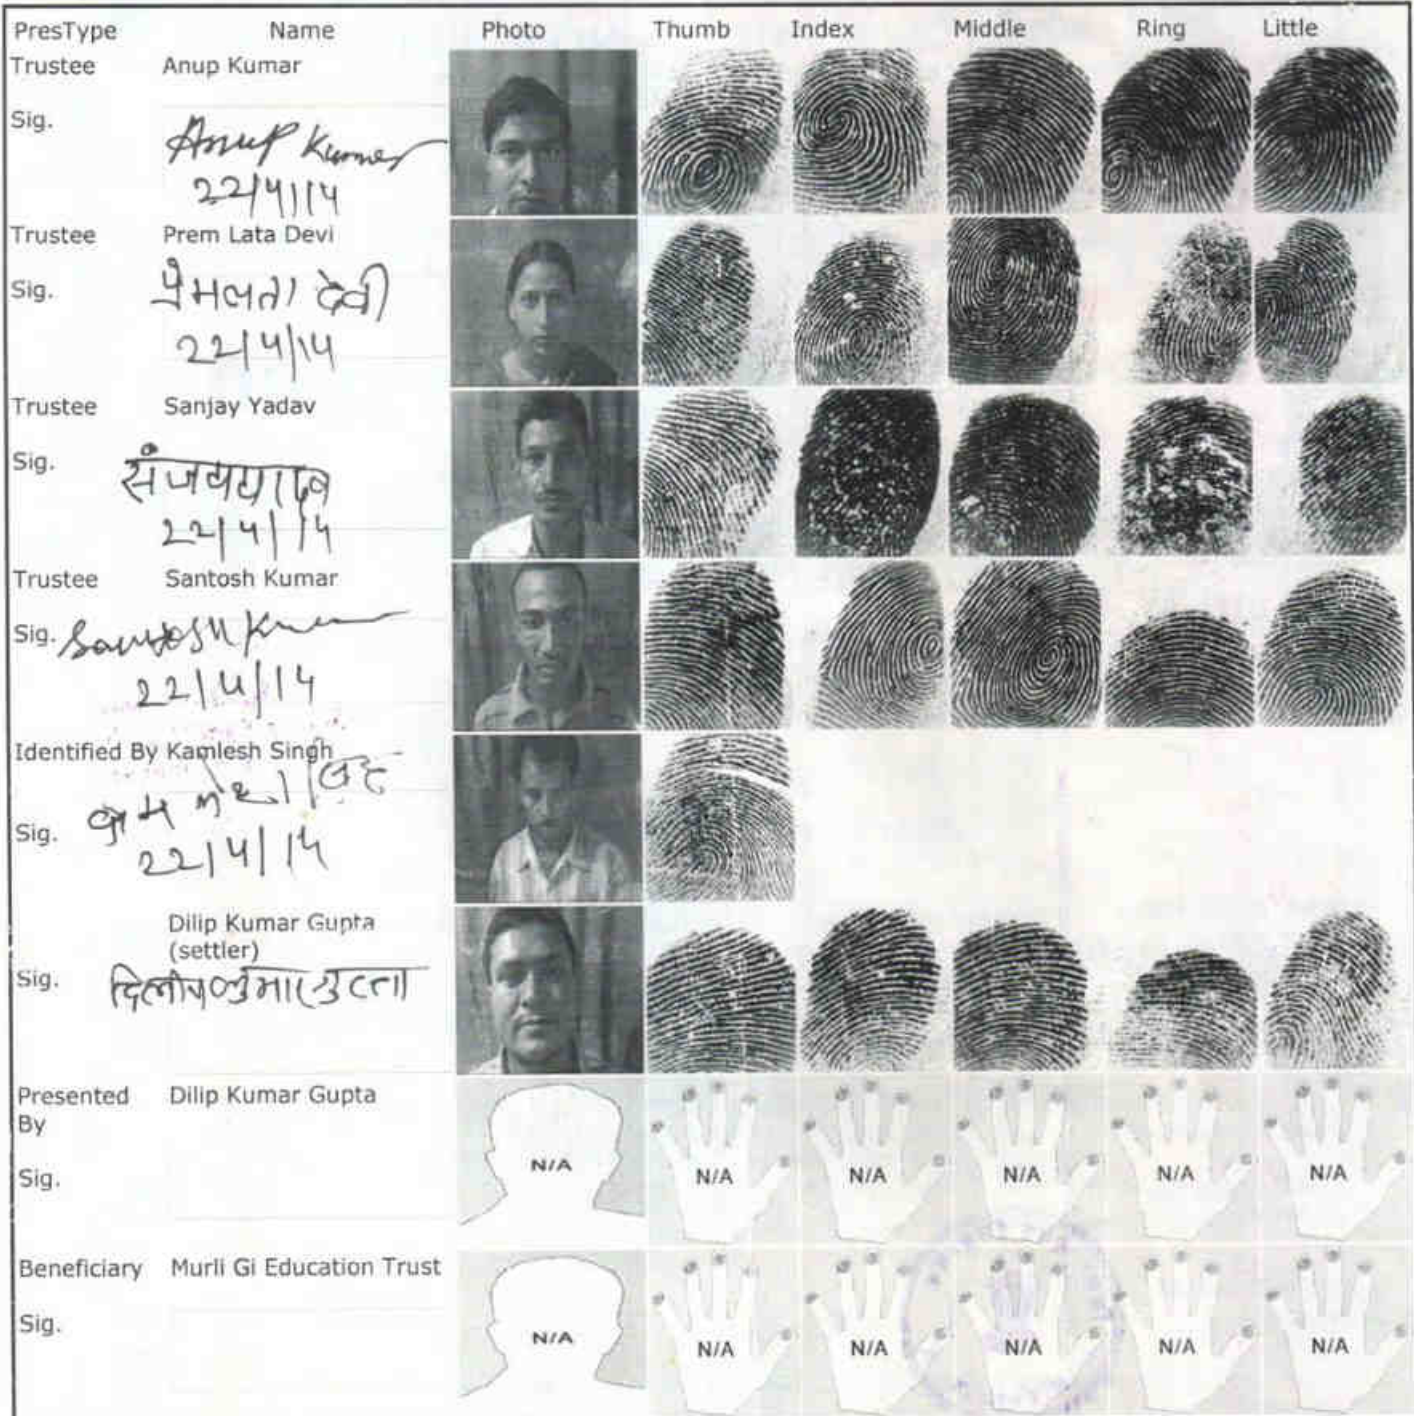 PresType Name Photo Thumb Index Middle Ring Little
Trustee Anup Kumar
Sig. Anup Kumar
22/4/14
Trustee Prem Lata Devi
Sig. प्रेमलता देवी
22/4/14
Trustee Sanjay Yadav
Sig. संजय यादव
22/4/14
Trustee Santosh Kumar
Sig. Santosh Kumar
22/4/14
Identified By Kamlesh Singh
कमलेश सिंह
Sig.
22/4/14
Dilip Kumar Gupta
(settler)
Sig. दिलीप कुमार गुप्ता
Presented Dilip Kumar Gupta
By
N/A N/A N/A N/A N/A N/A
Sig.
Beneficiary Murli Gi Education Trust
Sig.
N/A N/A N/A N/A N/A N/A